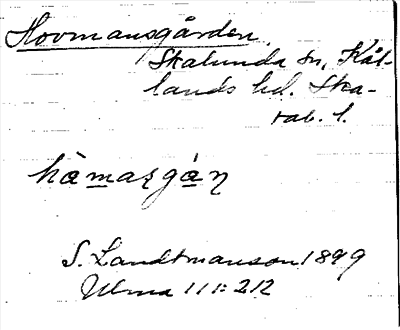 Hovmansgården.
Skalunda sn, Kål-
lands hd. Ska-
rab. l.
hàmaʂgán
S. Landtmanson 1899
Ulma 111:212